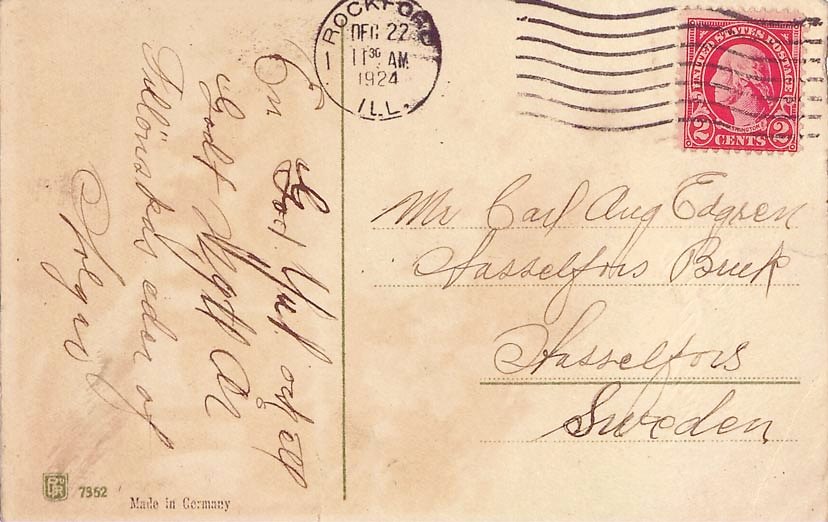 ROCKFORD
DEC 22
11 30 AM
1924
ILL.
UNITED STATES POSTAGE
WASHINGTON
2 CENTS 2
En God Jul och ett
Godt Nytt År
Tillönskas eder af
Mr Carl Aug Edgren
Hasselfors Bruk
Hasselfors
Sweden
7952
Made in Germany